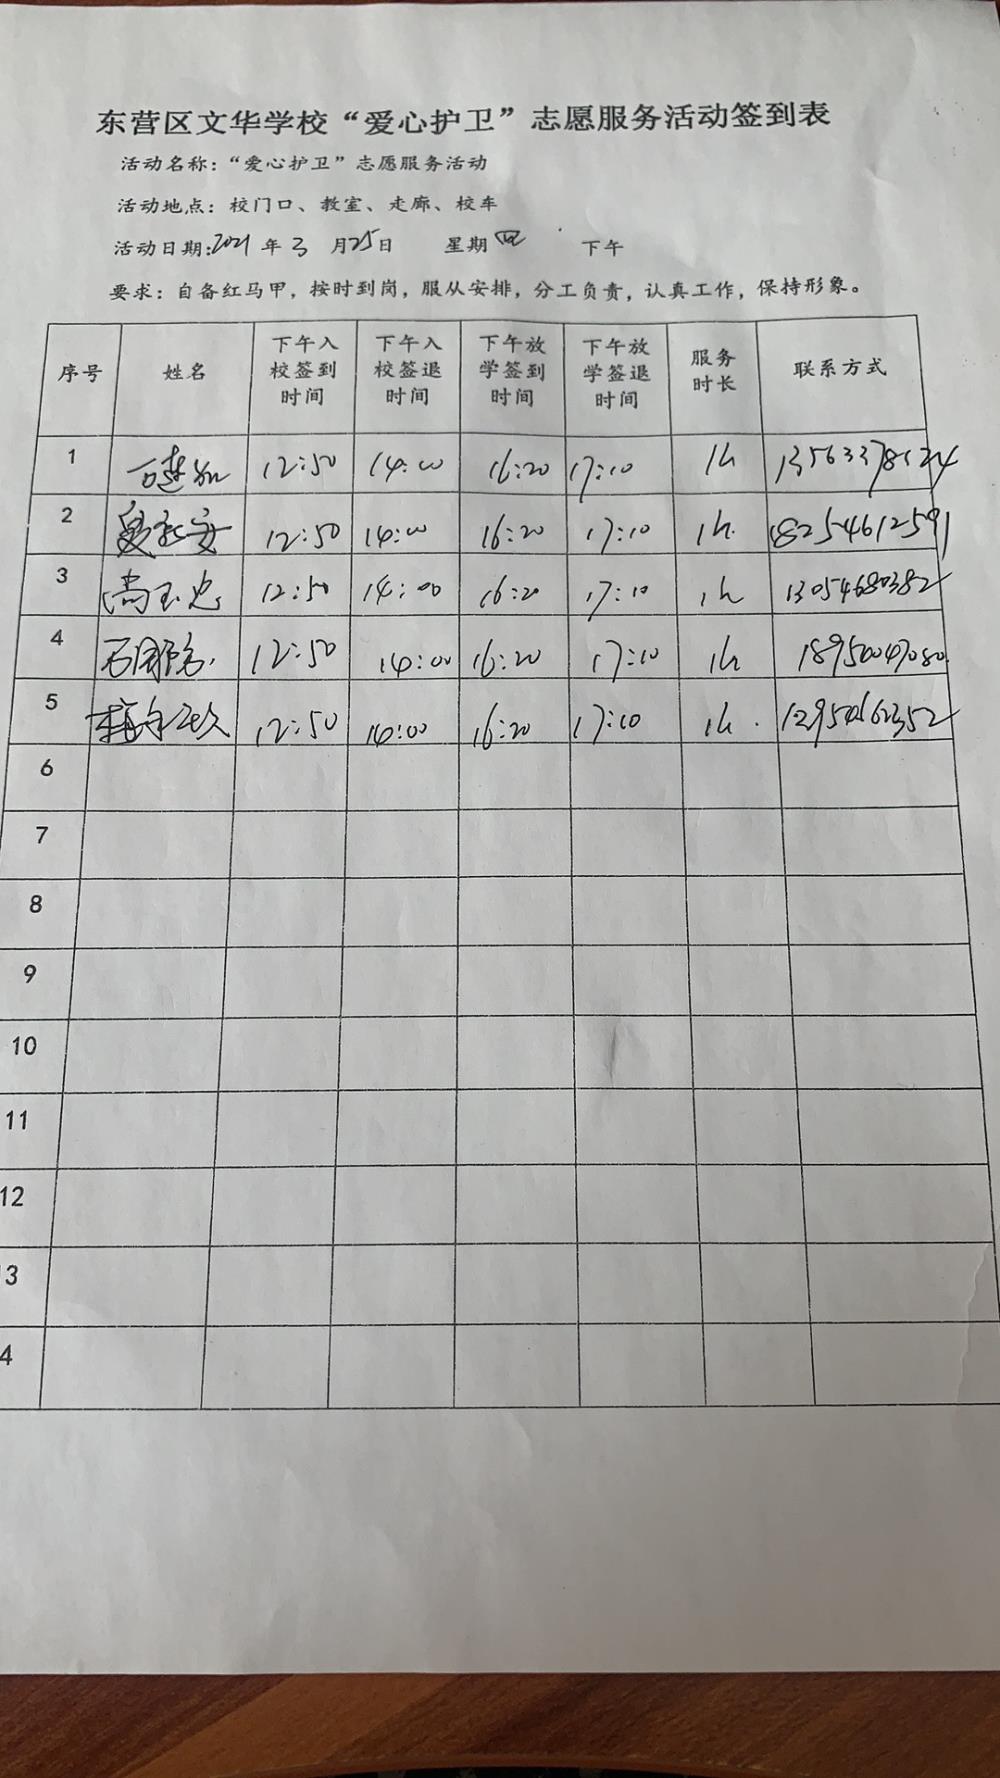 东营区文华学校“爱心护卫”志愿服务活动签到表
活动名称：“爱心护卫”志愿服务活动
活动地点：校门口、教室、走廊、校车
活动日期:2021年3月25日 星期四 下午
要求：自备红马甲，按时到岗，服从安排，分工负责，认真工作，保持形象。
序号 姓名 下午入校签到时间 下午入校签退时间 下午放学签到时间 下午放学签退时间 服务时长 联系方式
1 12:50 14:00 16:20 17:10 1h
2 12:50 14:00 16:20 17:10 1h. 18254612591
3 12:50 14:00 16:20 17:10 1h 13054680382
4 12:50 14:00 16:20 17:10 1h
5 12:50 14:00 16:20 17:10 1h.
6
7
8
9
10
11
12
13
4